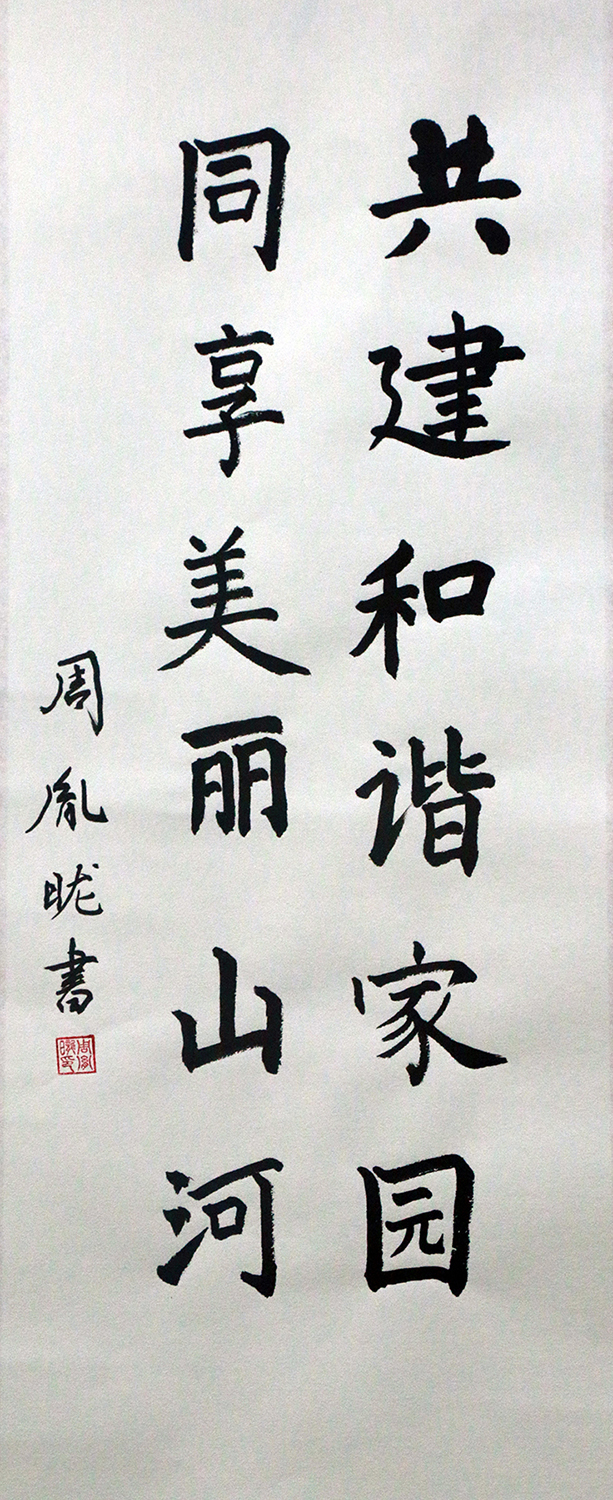 共建和谐家园
同享美丽山河
周胤昽書